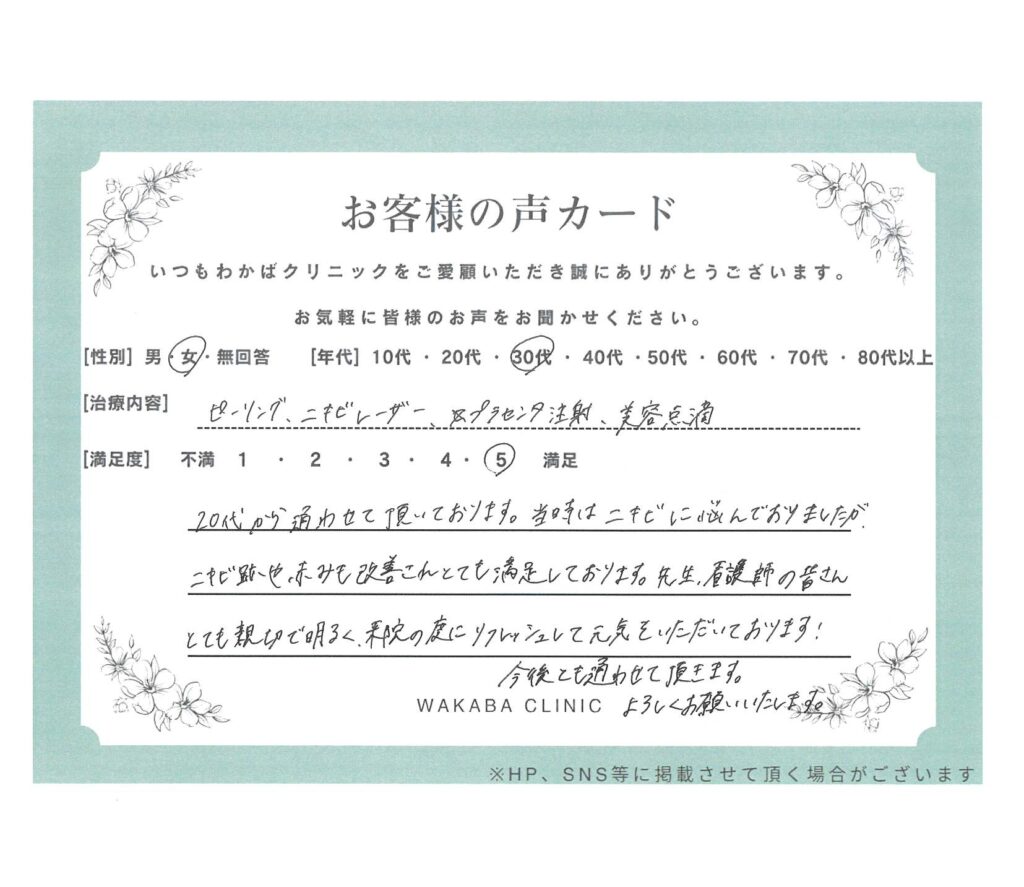 お客様の声カード
いつもわかばクリニックをご愛顧いただき誠にありがとうございます。
お気軽に皆様のお声をお聞かせください。
[性別] 男・女・無回答 [年代] 10代・20代・30代・40代・50代・60代・70代・80代以上
[治療内容] ピーリング、ニキビレーザー、プラセンタ注射、美容点滴
[満足度] 不満 1・2・3・4・5 満足
20代から通わせて頂いております。当時はニキビに悩んでおりましたが、
ニキビ跡や、赤みも改善されとても満足しております。先生、看護師の皆さん
とても親切で明るく、来院の度にリフレッシュして元気をいただいております!
今後とも通わせて頂きます。
WAKABA CLINIC よろしくお願いいたします。
※HP、SNS等に掲載させて頂く場合がございます